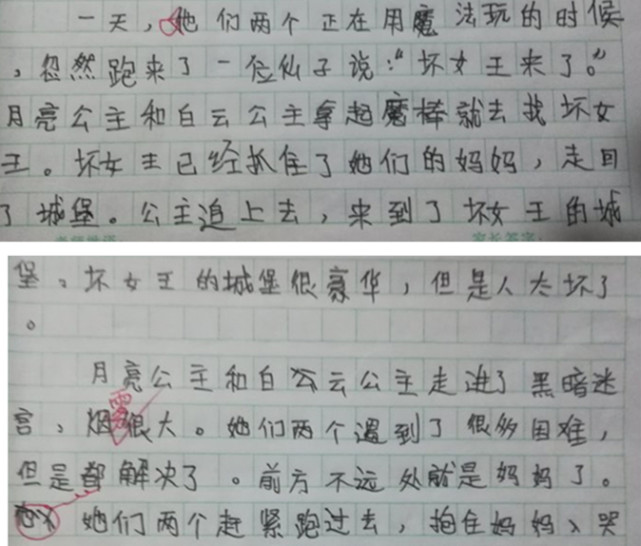 一天，她们两个正在用魔法玩的时候
，忽然跑来了一位仙子说：“坏女王来了。”
月亮公主和白云公主拿起魔棒就去找坏女
王。坏女王已经抓住了她们的妈妈，走回
了城堡。公主追上去，来到了坏女王的城
堡。坏女王的城堡很豪华，但是人太坏了
。
月亮公主和白云公主走进了黑暗迷
宫，烟雾很大。她们两个遇到了很多困难，
但是都解决了。前方不远处就是妈妈了。
她们两个赶紧跑过去，抱住妈妈、哭